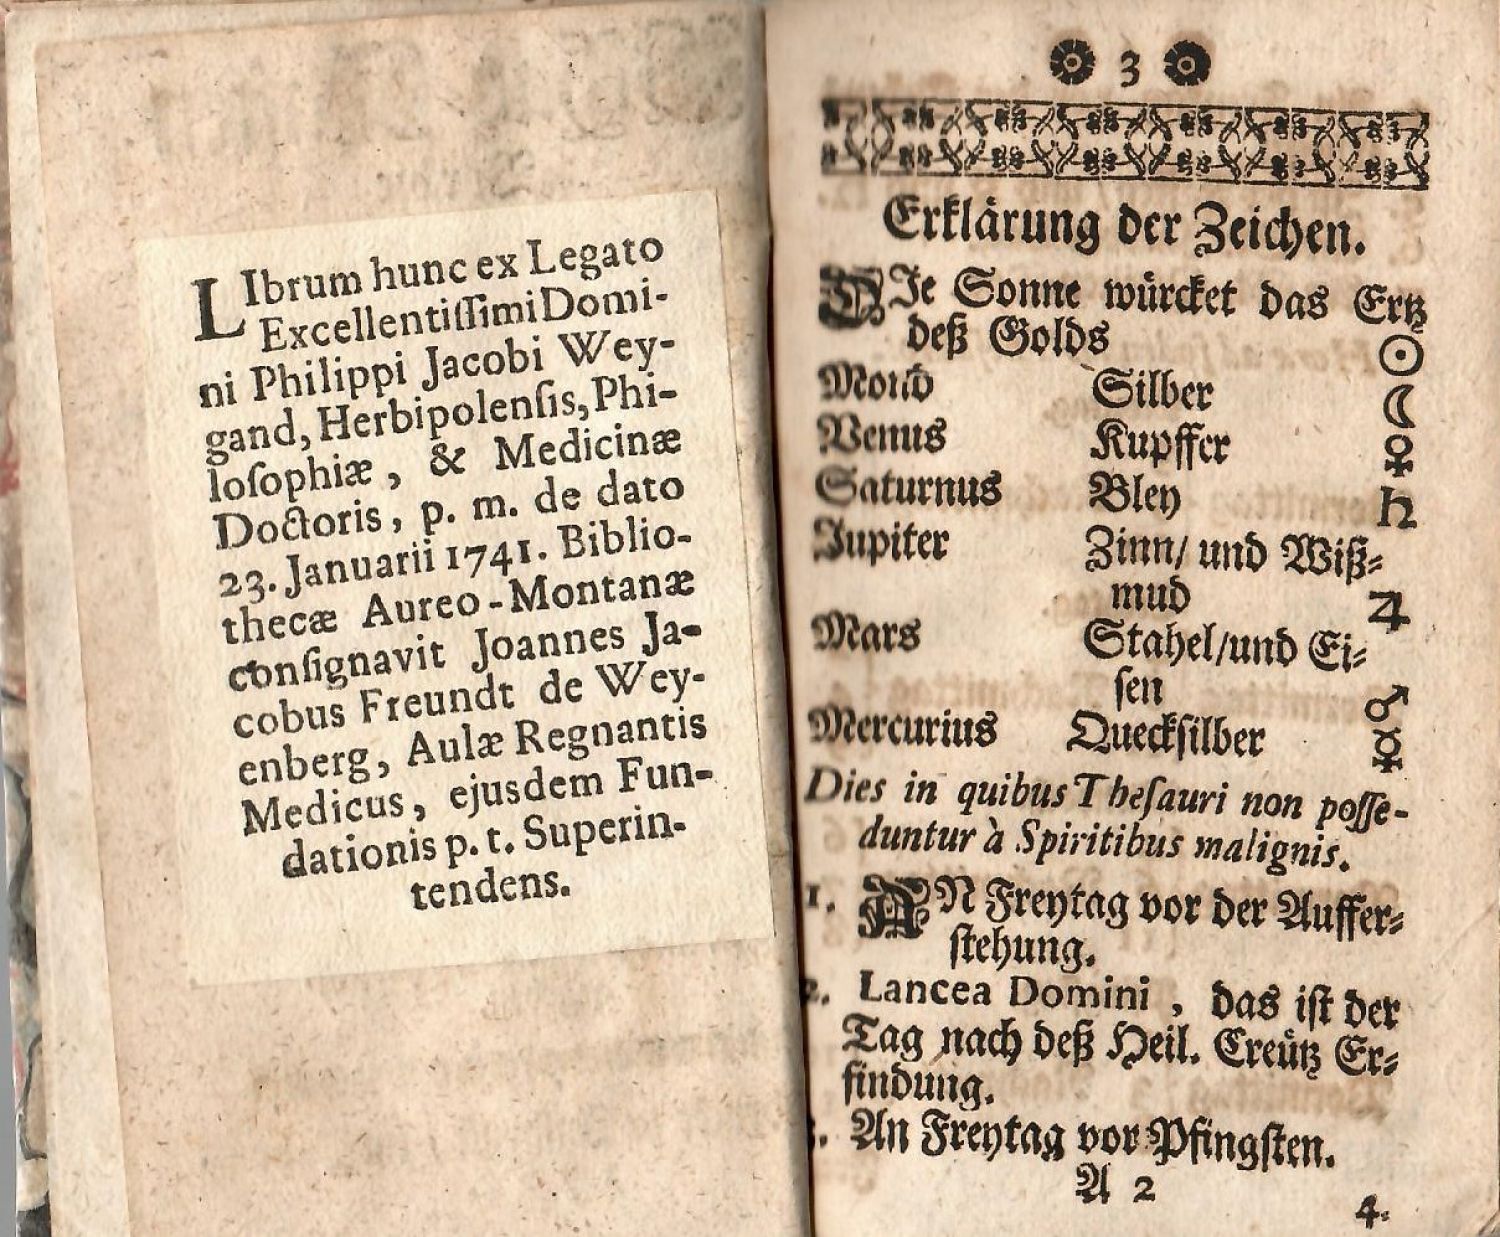 LIbrum hunc ex Legato
Excellentiſſimi Domi-
ni Philippi Jacobi Wey-
gand, Herbipolenſis, Phi-
loſophiæ, & Medicinæ
Doctoris, p. m. de dato
23. Januarii 1741. Biblio-
thecæ Aureo-Montanæ
conſignavit Joannes Ja-
cobus Freundt de Wey-
enberg, Aulæ Regnantis
Medicus, ejusdem Fun-
dationis p. t. Superin-
tendens.
3
Erklärung der Zeichen.
DIe Sonne würcket das Ertz
deß Golds ☉
Mond Silber ☾
Venus Kupffer ♀
Saturnus Bley ♄
Jupiter Zinn/ und Wiß-
mud ♃
Mars Stahel/und Ei-
ſen ♂
Mercurius Queckſilber ☿
Dies in quibus Theſauri non poſſe-
duntur à Spiritibus malignis.
1. AN Freytag vor der Auffer-
ſtehung.
2. Lancea Domini, das iſt der
Tag nach deß Heil. Creütz Er-
findung.
3. An Freytag vor Pfingſten.
A 2
4.